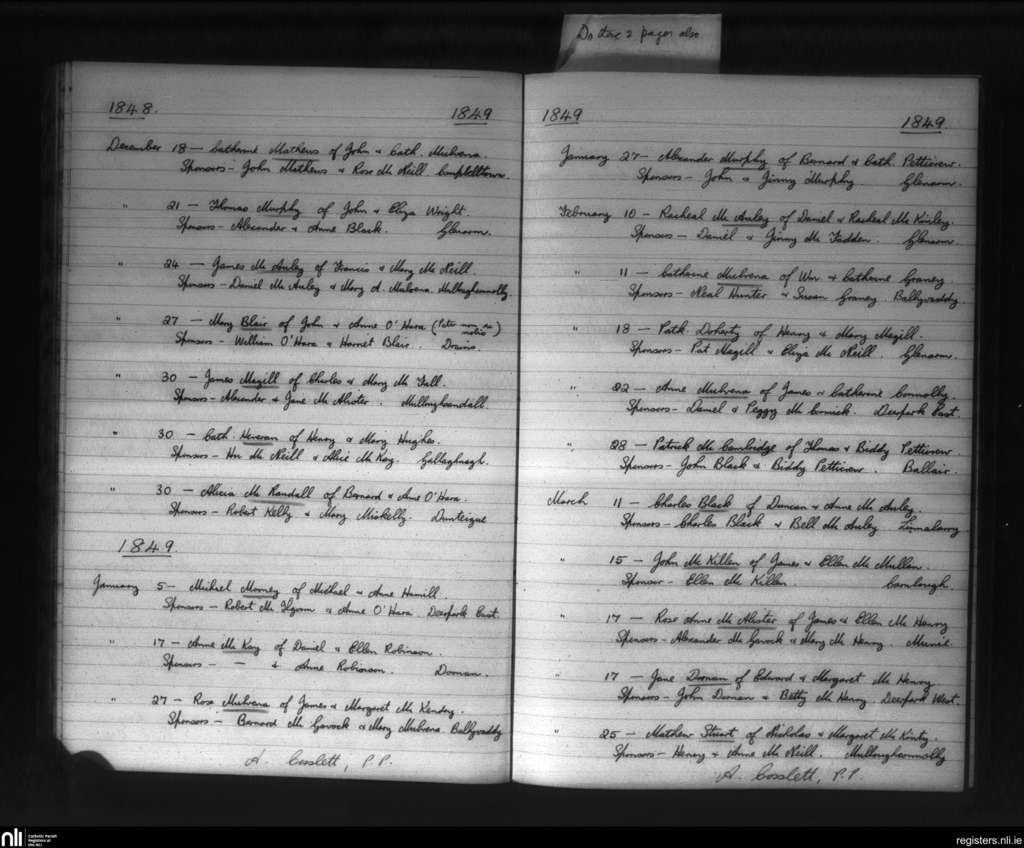 Do these 2 pages also
1848. 1849
December 18 — Catherine Mathews of John & Cath. Mulvena.
Sponsors - John Mathews & Rose Mc Neill. Campbelltown.
" 21 — Thomas Murphy of John & Eliza Wright.
Sponsors - Alexander & Anne Black. Glenarm.
" 24 — James Mc Auley of Francis & Mary Mc Neill.
Sponsors - Daniel Mc Auley & Mary A. Mulvena. Mulloughconnolly.
" 27 — Mary Blair of John & Anne O'Hara
Sponsors - William O'Hara & Harriet Blair. Drains.
" 30 — James Magill of Charles & Mary Mc Fall.
Sponsors - Alexander & Jane Mc Alister. Mulloughsandall.
" 30 — Cath. Heveran of Henry & Mary Hughes.
Sponsors - Hu. Mc Neill & Alice Mc Kay. Gallaghagh.
" 30 — Alicia Mc Randall of Bernard & Anne O'Hara.
Sponsors - Robert Kelly & Mary Miskelly. Dunteigue
1849.
January 5 — Michael Mooney of Michael & Anne Hamill.
Sponsors - Robert Mc Ilgorm & Anne O'Hara. Deerpark East.
" 17 — Anne Mc Kay of Daniel & Ellen Robinson.
Sponsors - — & Anne Robinson. Doonan.
" 27 — Rose Mulvena of James & Margaret Mc Kendry.
Sponsors - Bernard Mc Gavock & Mary Mulvena. Ballyvaddy
A. Cosslett, P.P.
1849 1849
January 27 — Alexander Murphy of Bernard & Cath. Petticrew.
Sponsors - John & Jinny Murphy. Glenarm.
February 10 — Racheal Mc Auley of Daniel & Racheal Mc Kinley.
Sponsors - Daniel & Jinny Mc Fadden. Glenarm.
" 11 — Catherine Mulvena of Wm. & Catherine Graney.
Sponsors - Neal Hunter & Susan Graney. Ballyvaddy.
" 18 — Patk. Doherty of Henry & Mary Magill.
Sponsors - Pat Magill & Eliza Mc Neill. Glenarm.
" 22 — Anne Mulvena of James & Catherine Connolly.
Sponsors - Daniel & Peggy Mc Cormick. Deerpark East.
" 28 — Patrick Mc Cambridge of Thomas & Biddy Petticrew.
Sponsors - John Black & Biddy Petticrew. Ballair.
March 11 — Charles Black of Duncan & Anne Mc Auley.
Sponsors - Charles Black & Bell Mc Auley Linnalarry.
" 15 — John Mc Killen of James & Ellen Mc Mullan.
Sponsor - Ellen Mc Killen Carnlough.
" 17 — Rose Anne Mc Alister of James & Ellen Mc Henry
Sponsors - Alexander Mc Gavock & Mary Mc Henry. Munie.
" 17 — Jane Doonan of Edward & Margaret Mc Henry.
Sponsors - John Doonan & Betty Mc Henry. Deerpark West.
" 25 — Mathew Stuart of Nicholas & Margaret Mc Kinty.
Sponsors - Henry & Anne Mc Neill. Mulloughconnolly
A. Cosslett, P.P.
nli
Catholic Parish
Registers at
the NLI
registers.nli.ie